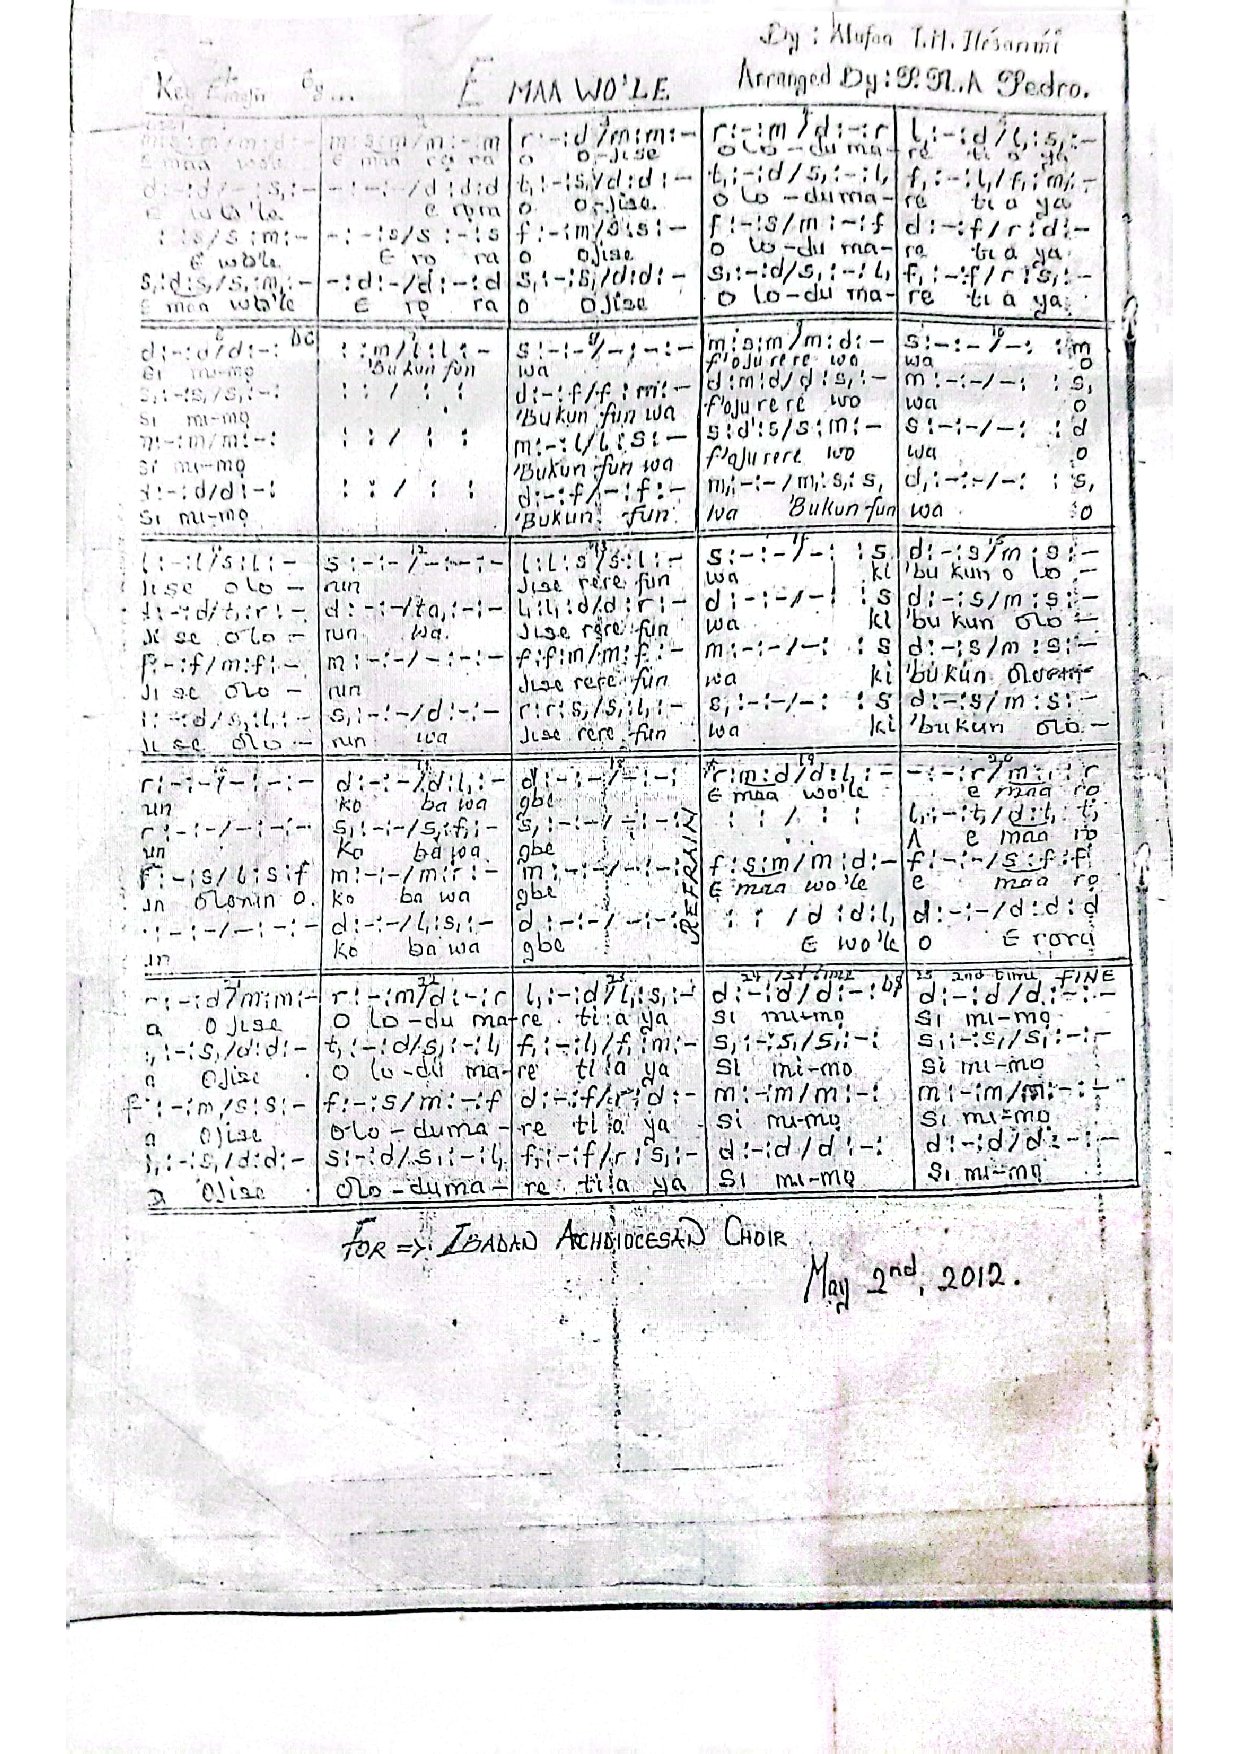 By : Alufaa T.M. Ilésanmi
Key 6/8... E MAA WO'LE Arranged By : P. N. A Pedro.
r : - : d / m : m : - r : - : m / d : - : r l, : - : d / l, : s, : -
E maa wole E maa ro ra o o-jise o lo - du ma- re ti a ya
d : - : d / - : s, : - - : - : - / d : d : d t, : - : s, / d : d : - t, : - : d / s, : - : l, f, : - : l, / f, : m, : -
E wo'le e rora o o-jise. o lo - duma- re ti a ya
: : s / s : m : - - : - : s / s : - : s f : - : m / s : s : - f : - : s / m : - : f d : - : f / r : d : -
E wole E ro ra o ojise o lo - du ma- re ti a ya
s, : d : s, / s, : m, : - - : d : - / d : - : d s, : - : s, / d : d : - s, : - : d / s, : - : l, f, : - : f / r : s, : -
E maa wo'le E ro ra o ojise o lo - du ma- re ti a ya
d : - : d / d : - : DC : : m / l : l : - s : - : - / - : - : - m : s : m / m : d : - s : - : - / - : : m
Si mi-mo 'Bukun fun wa f'oju rere wo wa o
s, : - : s, / s, : - : : : / : : d : - : f / f : m : - d : m : d / d : s, : - m : - : - / - : : s,
Si mi-mo 'Bukun fun wa f'oju rere wo wa o
m : - : m / m : - : : : / : : m : - : l / l : s : - s : d' : s / s : m : - s : - : - / - : : d
Si mi-mo 'Bukun fun wa f'oju rere wo wa o
d : - : d / d : - : : : / : : d : - : f / - : f : - m, : - : - / m, : s, : s, d, : - : - / - : : s,
Si mi-mo 'Bukun fun wa Bukun fun wa o
l : - : l / s : l : - s : - : - / - : - : - l : l : s / s : l : - s : - : - / - : : s d : - : s / m : s : -
Jise olo - run Jise rere fun wa ki 'bu kun o lo -
d : - : d / t, : r : - d : - : - / ta, : - : - l, : l, : d / d : r : - d : - : - / - : : s d : - : s / m : s : -
Ji se olo - run wa Jise rere fun wa ki 'bu kun olo -
f : - : f / m : f : - m : - : - / - : - : - f : f : m / m : f : - m : - : - / - : : s d : - : s / m : s : -
Ji se olo - run Jise rere fun wa ki 'bukun
l, : - : d / s, : l, : - s, : - : - / d : - : - r : r : s, / s, : l, : - s, : - : - / - : : s d : - : s / m : s : -
Ji se olo - run wa Jise rere fun wa ki 'bukun olo -
r : - : - / - : - : - d : - : - / d : l, : - d : - : - / - : - : r : m : d / d : l, : - - : - : r / m : : r
un ko ba wa gbe E maa wo'le e maa ro
r : - : - / - : - : - s, : - : - / s, : f, : - s, : - : - / - : - : : : / : : l, : - : t, / d : l, : t,
un ko ba wa gbe REFRAIN A e maa ro
f : - : s / l : s : f m : - : - / m : r : - m : - : - / - : - : f : s : m / m : d : - f : - : - / s : f : f
un olonin o. ko ba wa gbe E maa wo'le e maa ro
- : - : - / - : - : - d : - : - / l, : s, : - d : - : - / - : - : : : / d : d : l, d : - : - / d : d : d
un ko ba wa gbe E wo'le o E rora
22 23 24 1st time DS 25 2nd time FINE
r : - : d / m : m : - r : - : m / d : - : r l, : - : d / l, : s, : - d : - : d / d : - : d : - : d / d : - : -
a Ojise O lo-du ma-re ti a ya Si mi-mo Si mi-mo
t, : - : s, / d : d : - t, : - : d / s, : - : l, f, : - : l, / f, : m, : - s, : - : s, / s, : - : s, : - : s, / s, : - : -
a Ojise O lo-du ma-re ti a ya Si mi-mo Si mi-mo
f : - : m / s : s : - f : - : s / m : - : f d : - : f / r : d : - m : - : m / m : - : m : - : m / m : - : -
a Ojise Olo-duma-re ti a ya Si mi-mo Si mi-mo
s, : - : s, / d : d : - s : - : d / s, : - : l, f, : - : f / r : s, : - d : - : d / d : - : d : - : d / d : - : -
a Ojise Olo-duma-re ti a ya Si mi-mo Si mi-mo
FOR => IBADAN ACHDIOCESAN CHOIR
May 2nd, 2012.